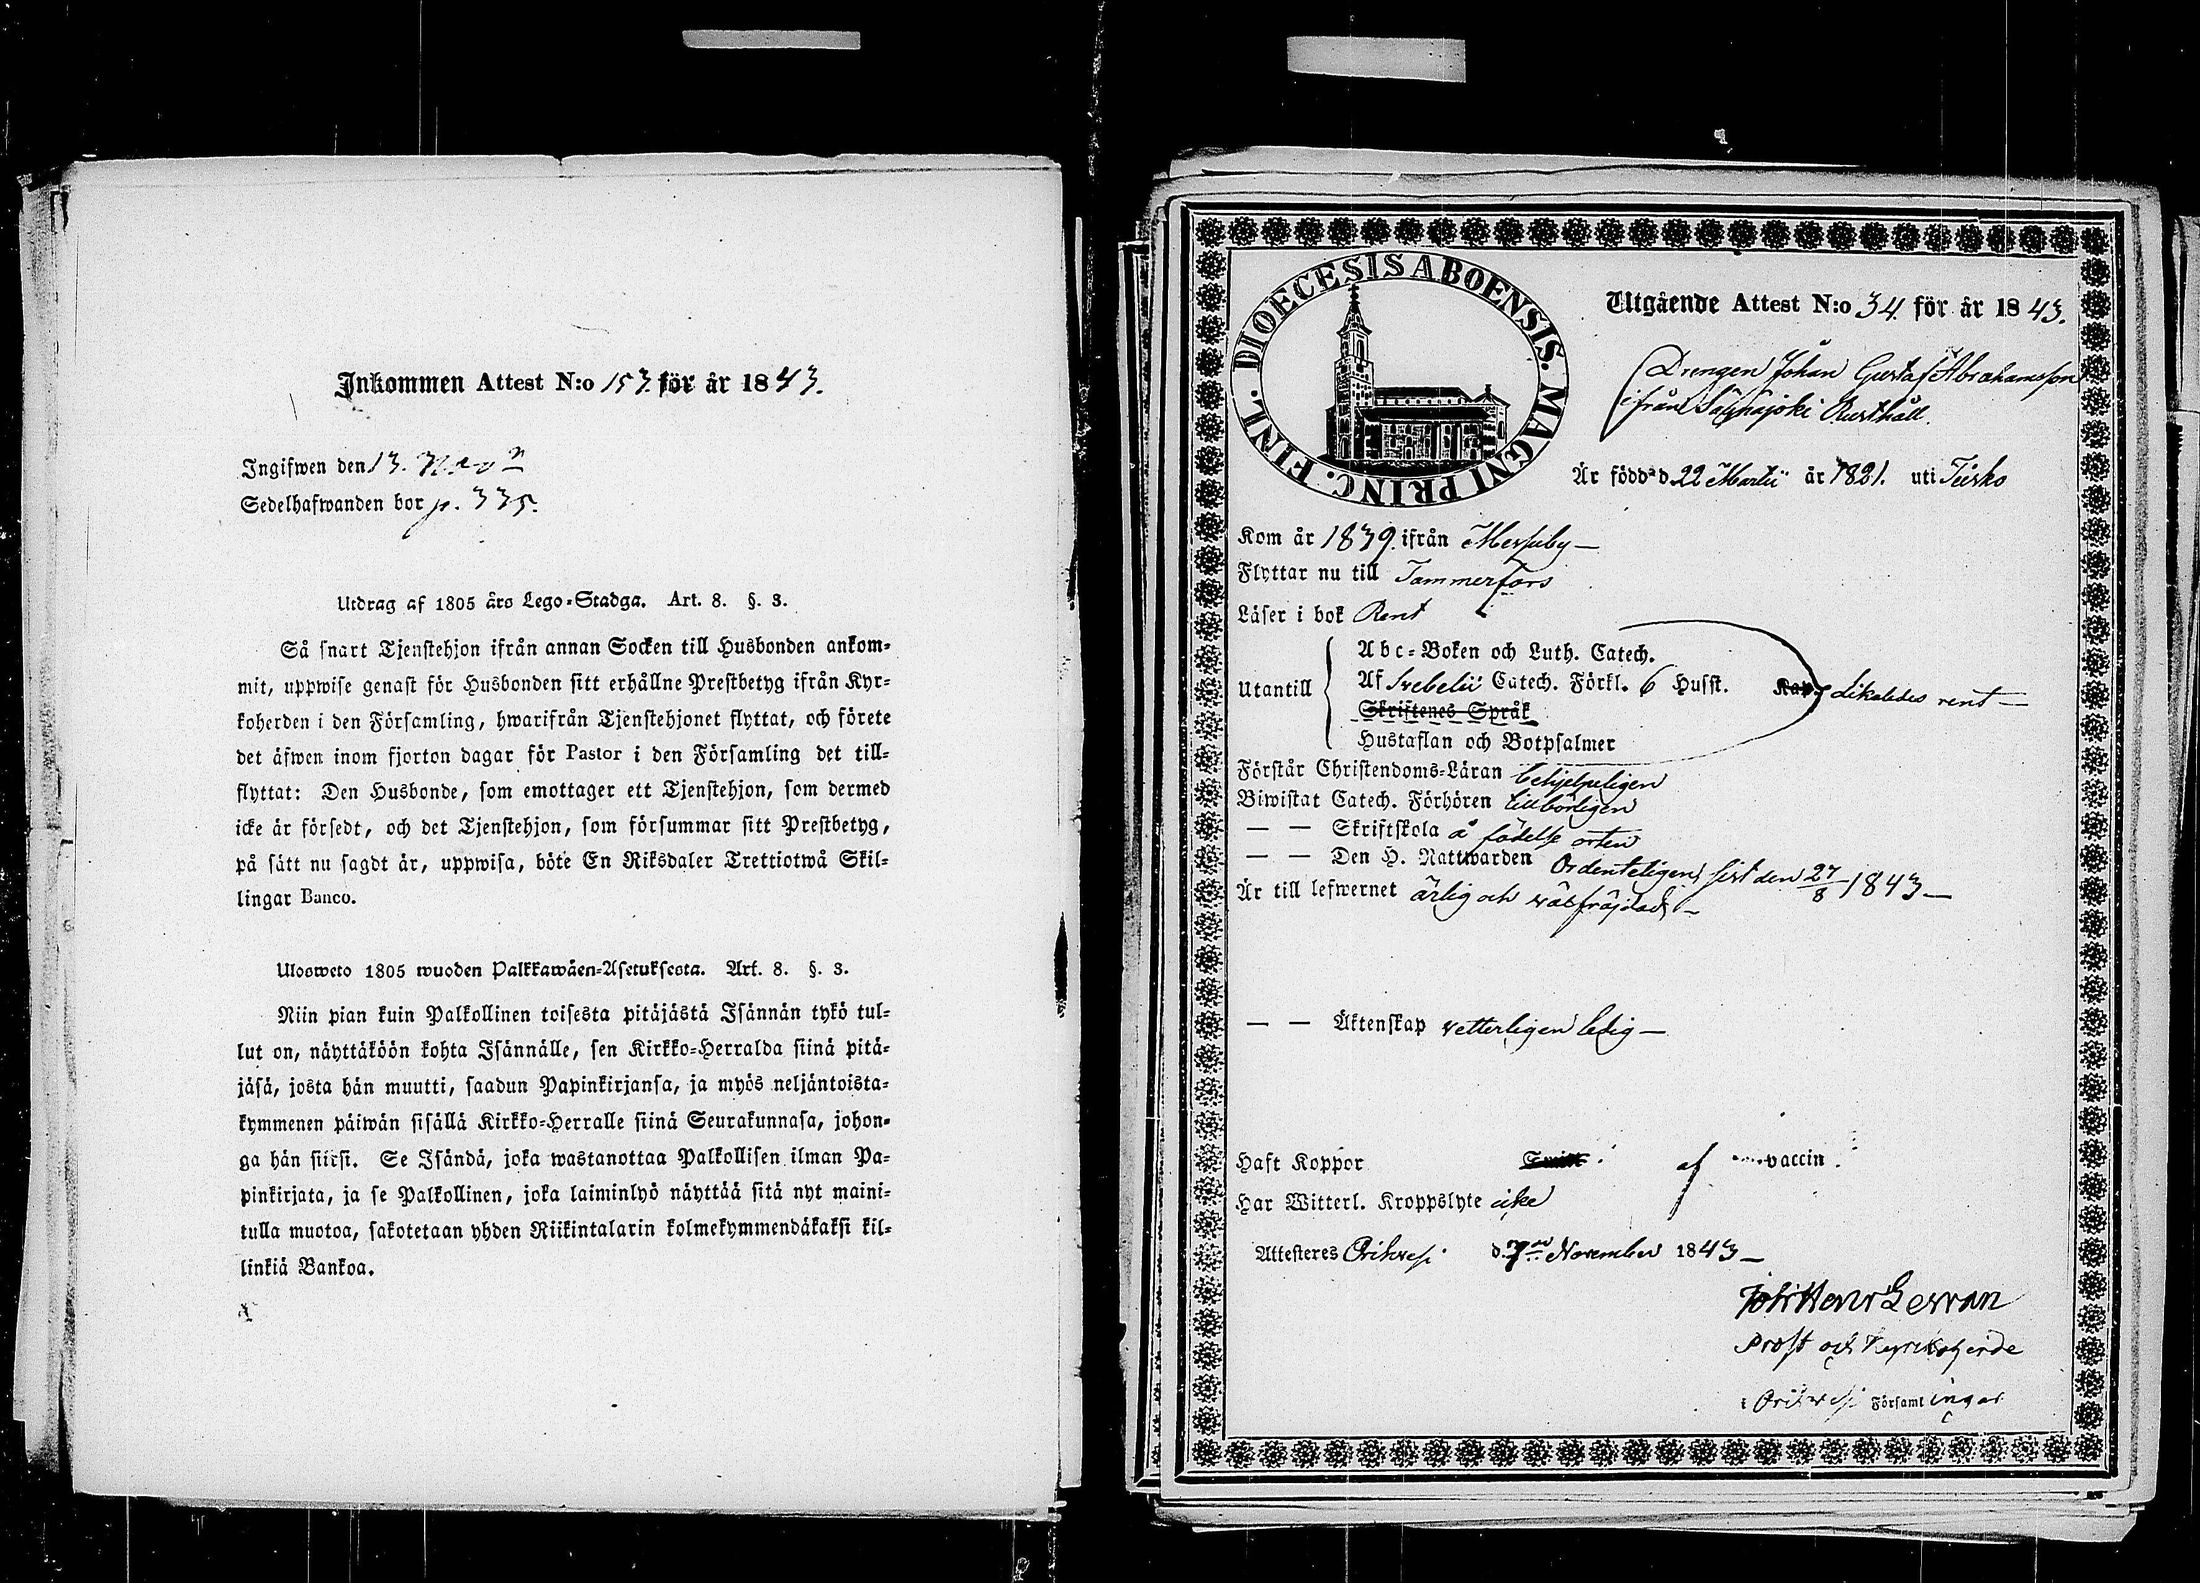 Inkommen Attest N:o 153 för år 1843.
Ingifwen den 13. Nov
Sedelhafwanden bor p. 335.
Utdrag af 1805 års Lego-Stadga. Art. 8. §. 3.
Så snart Tjenstehjon ifrån annan Socken till Husbonden ankom-
mit, uppwise genast för Husbonden sitt erhållne Prestbetyg ifrån Kyr-
koherden i den Församling, hwarifrån Tjenstehjonet flyttat, och förete
det äfwen inom fjorton dagar för Pastor i den Församling det till-
flyttat: Den Husbonde, som emottager ett Tjenstehjon, som dermed
icke är försedt, och det Tjenstehjon, som försummar sitt Prestbetyg,
på sätt nu sagdt är, uppwisa, böte En Riksdaler Trettiotwå Skil-
lingar Banco.
Ulosweto 1805 wuoden Palkkawäen-Asetuksesta. Art. 8. §. 3.
Niin pian kuin Palkollinen toisesta pitäjästä Isännän tykö tul-
lut on, näyttäköön kohta Isännälle, sen Kirkko-Herralda siinä pitä-
jäsä, josta hän muutti, saadun Papinkirjansa, ja myös neljäntoista-
kymmenen päiwän sisällä Kirkko-Herralle siinä Seurakunnasa, johon-
ga hän siirsi. Se Isändä, joka wastanottaa Palkollisen ilman Pa-
pinkirjata, ja se Palkollinen, joka laiminlyö näyttää sitä nyt maini-
tulla muotoa, sakotetaan yhden Riikintalarin kolmekymmendäkaksi kil-
linkiä Bankoa.
DIOECESIS ABOENSIS. MAGNI PRINC. FINL.
Utgående Attest N:o 34 för år 1843.
Drengen Johan Gustaf Abrahamsson
ifrån Säynäjoki Rusthåll.
Är född d. 22 Martii år 1821. uti Teisko
Kom år 1839. ifrån Messuby
Flyttar nu till Tammerfors
Läser i bok Rent
Abc-Boken och Luth. Catech.
Utantill Af Svebelii Catech. Förkl. 6 Husst. Kap. Likaledes rent
Skriftenes Språk
Hustaflan och Botpsalmer
Förstår Christendoms-Läran behjelpeligen
Biwistat Catech. Förhören tillbörligen
— — Skriftskola å födelse orten
— — Den H. Nattwarden Ordenteligen, sist den 27/8 1843
Är till lefwernet ärlig och välfräjdad
— — Äktenskap vetterligen ledig
Haft Koppor af vaccin.
Har Witterl. Kroppslyte icke
Attesteres Orihvesi d. 7 November 1843
Joh Henr
Prost och Kyrkoherde
i Orihvesi Församlingar